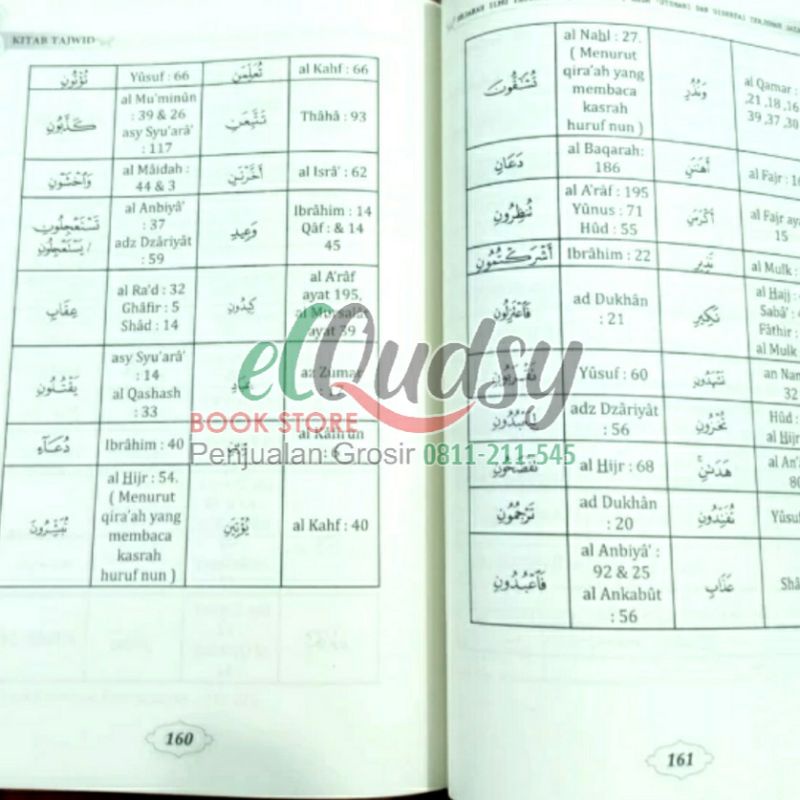 KITAB TAJWID
تُؤْتُونِ Yûsuf : 66 تُعَلِّمَنِ al Kahf : 66
كَذَّبُونِ al Mu'minûn
: 39 & 26
asy Syu'arâ'
: 117
تَتَّبِعَنِ Thâhâ : 93
وَاخْشَوْنِ al Mâidah :
44 & 3
أَخَّرْتَنِ al Isrâ' : 62
تَسْتَعْجِلُونِ
/ يَسْتَعْجِلُونِ
al Anbiyâ'
: 37
adz Dzâriyât
: 59
وَعِيدِ Ibrâhim : 14
Qâf : & 14
45
عِقَابِ al Ra'd : 32
Ghâfir : 5
Shâd : 14
كِيدُونِ al A'râf
ayat 195,
ayat 39
يَقْتُلُونِ asy Syu'arâ'
: 14
al Qashash
: 33
az Zumar
دُعَاءِ Ibrâhim : 40
تُبَشِّرُونَ al Hijr : 54.
( Menurut
qira'ah yang
membaca
kasrah
huruf nun )
يُؤْتِيَنِ al Kahf : 40
160
تُشَاقُّونَ al Nahl : 27.
( Menurut
qira'ah yang
membaca
kasrah
huruf nun )
وَنُذُرِ al Qamar :
,21 ,18 ,16
39 ,37 ,30
دَعَانِ al Baqarah:
186
أَهَانَنِ al Fajr : 16
تُنْظِرُونِ al A'râf : 195
Yûnus : 71
Hûd : 55
أَكْرَمَنِ al Fajr aya
15
أَشْرَكْتُمُونِ Ibrâhim : 22 نَذِيرِ al Mulk :
فَاعْتَزِلُونِ ad Dukhân
: 21
نَكِيرِ al Hajj :
Saba' :
Fâthir :
al Mulk
تَقْرَبُونِ Yûsuf : 60 تَشْهَدُونِ an Nam
32
adz Dzâriyât
: 56
تُخْزُونِ Hûd :
al Hijr
تَفْضَحُونِ al Hijr : 68 هَدَانِ al An'
80
تَرْجُمُونِ ad Dukhân
: 20
تُفَنِّدُونِ Yûsuf
فَاعْبُدُونِ al Anbiyâ' :
92 & 25
al Ankabût
: 56
عَذَابِ Shâ
161
elQudsy
BOOK STORE
Penjualan Grosir 0811-211-545